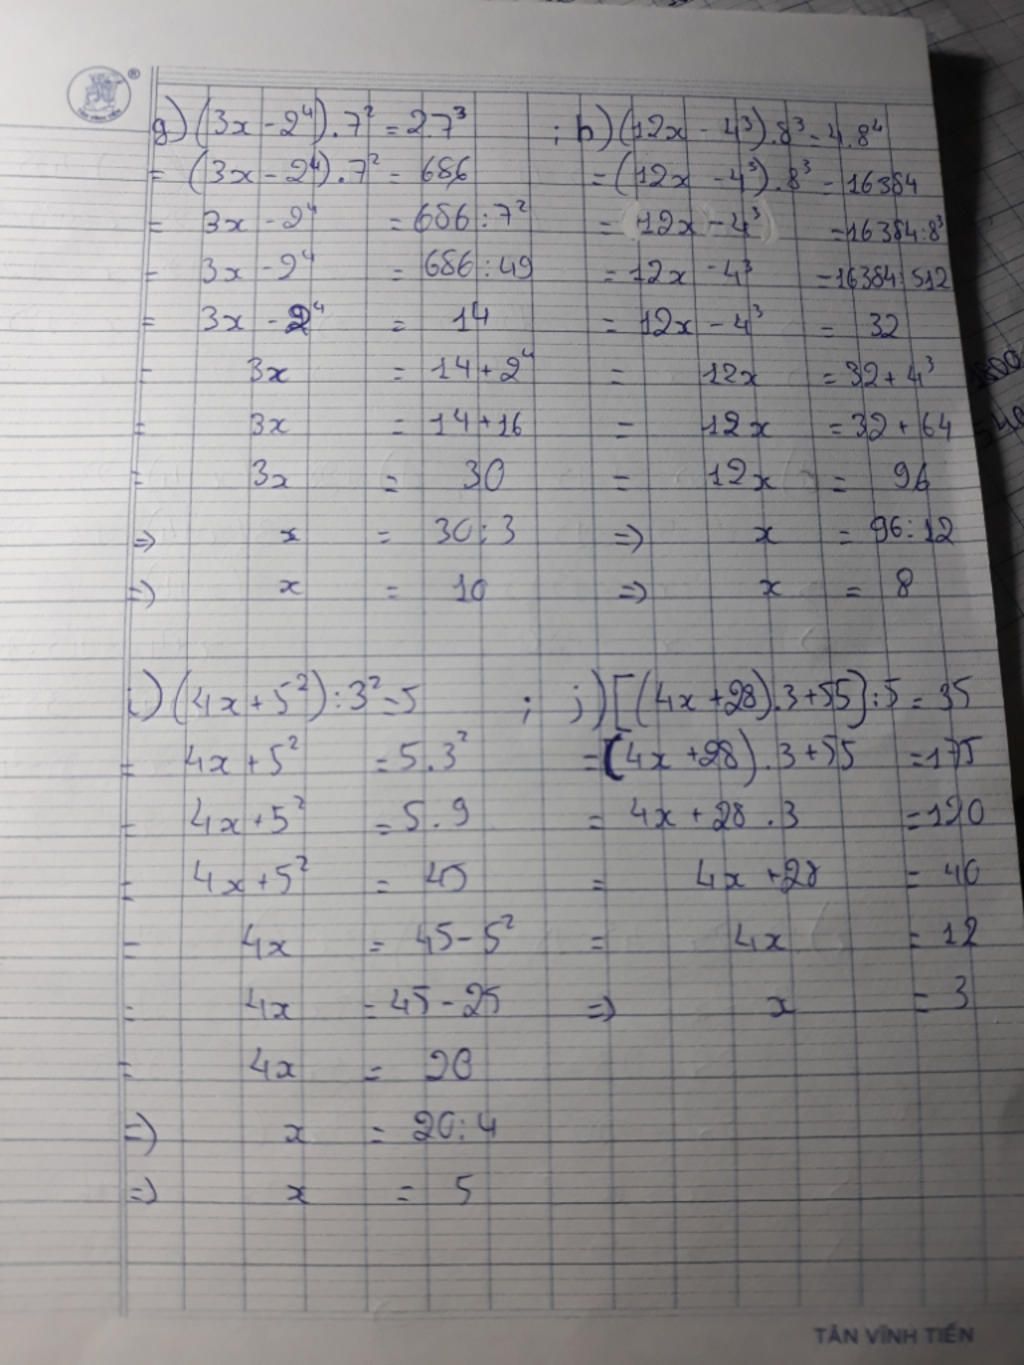 g) (3x - 2⁴) . 7² = 2.7³ ; h) (12x - 4³) . 8³ = 4 . 8⁴
= (3x - 2⁴) . 7² = 686 = (12x - 4³) . 8³ = 16384
= 3x - 2⁴ = 686 : 7² = (12x - 4³) = 16384 : 8³
= 3x - 2⁴ = 686 : 49 = 12x - 4³ = 16384 : 512
= 3x - 2⁴ = 14 = 12x - 4³ = 32
= 3x = 14 + 2⁴ = 12x = 32 + 4³
= 3x = 14 + 16 = 12x = 32 + 64
= 3x = 30 = 12x = 96
=> x = 30 : 3 => x = 96 : 12
=> x = 10 => x = 8
i) (4x + 5²) : 3² = 5 ; j) [(4x + 28) . 3 + 55] : 5 = 35
= 4x + 5² = 5 . 3² = (4x + 28) . 3 + 55 = 175
= 4x + 5² = 5 . 9 = 4x + 28 . 3 = 120
= 4x + 5² = 45 = 4x + 28 = 40
= 4x = 45 - 5² = 4x = 12
= 4x = 45 - 25 => x = 3
= 4x = 20
=> x = 20 : 4
=> x = 5
TÂN VĨNH TIẾN